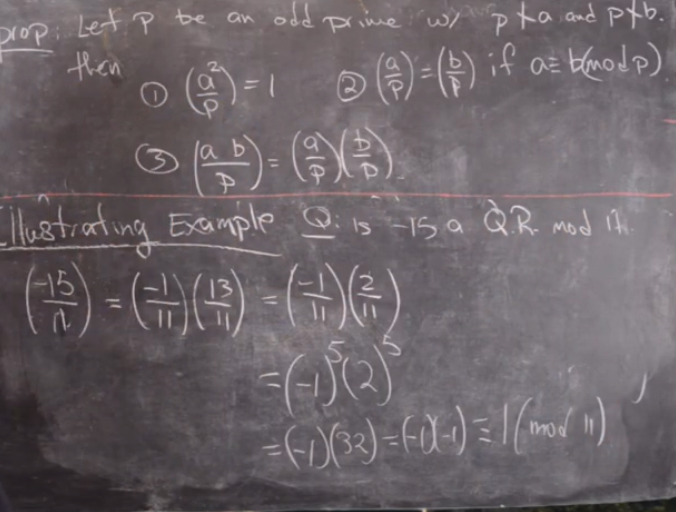 prop: Let P be an odd prime w/ p∤a and p∤b.
then ① (a²/p) = 1 ② (a/p) = (b/p) if a ≡ b(mod p)
③ (ab/p) = (a/p)(b/p).
Illustrating Example Q: is -15 a Q.R. mod 11.
(-15/11) = (-1/11)(13/11) = (-1/11)(2/11)
= (-1)⁵(2)⁵
= (-1)(32) = (-1)(-1) ≡ 1 (mod 11)